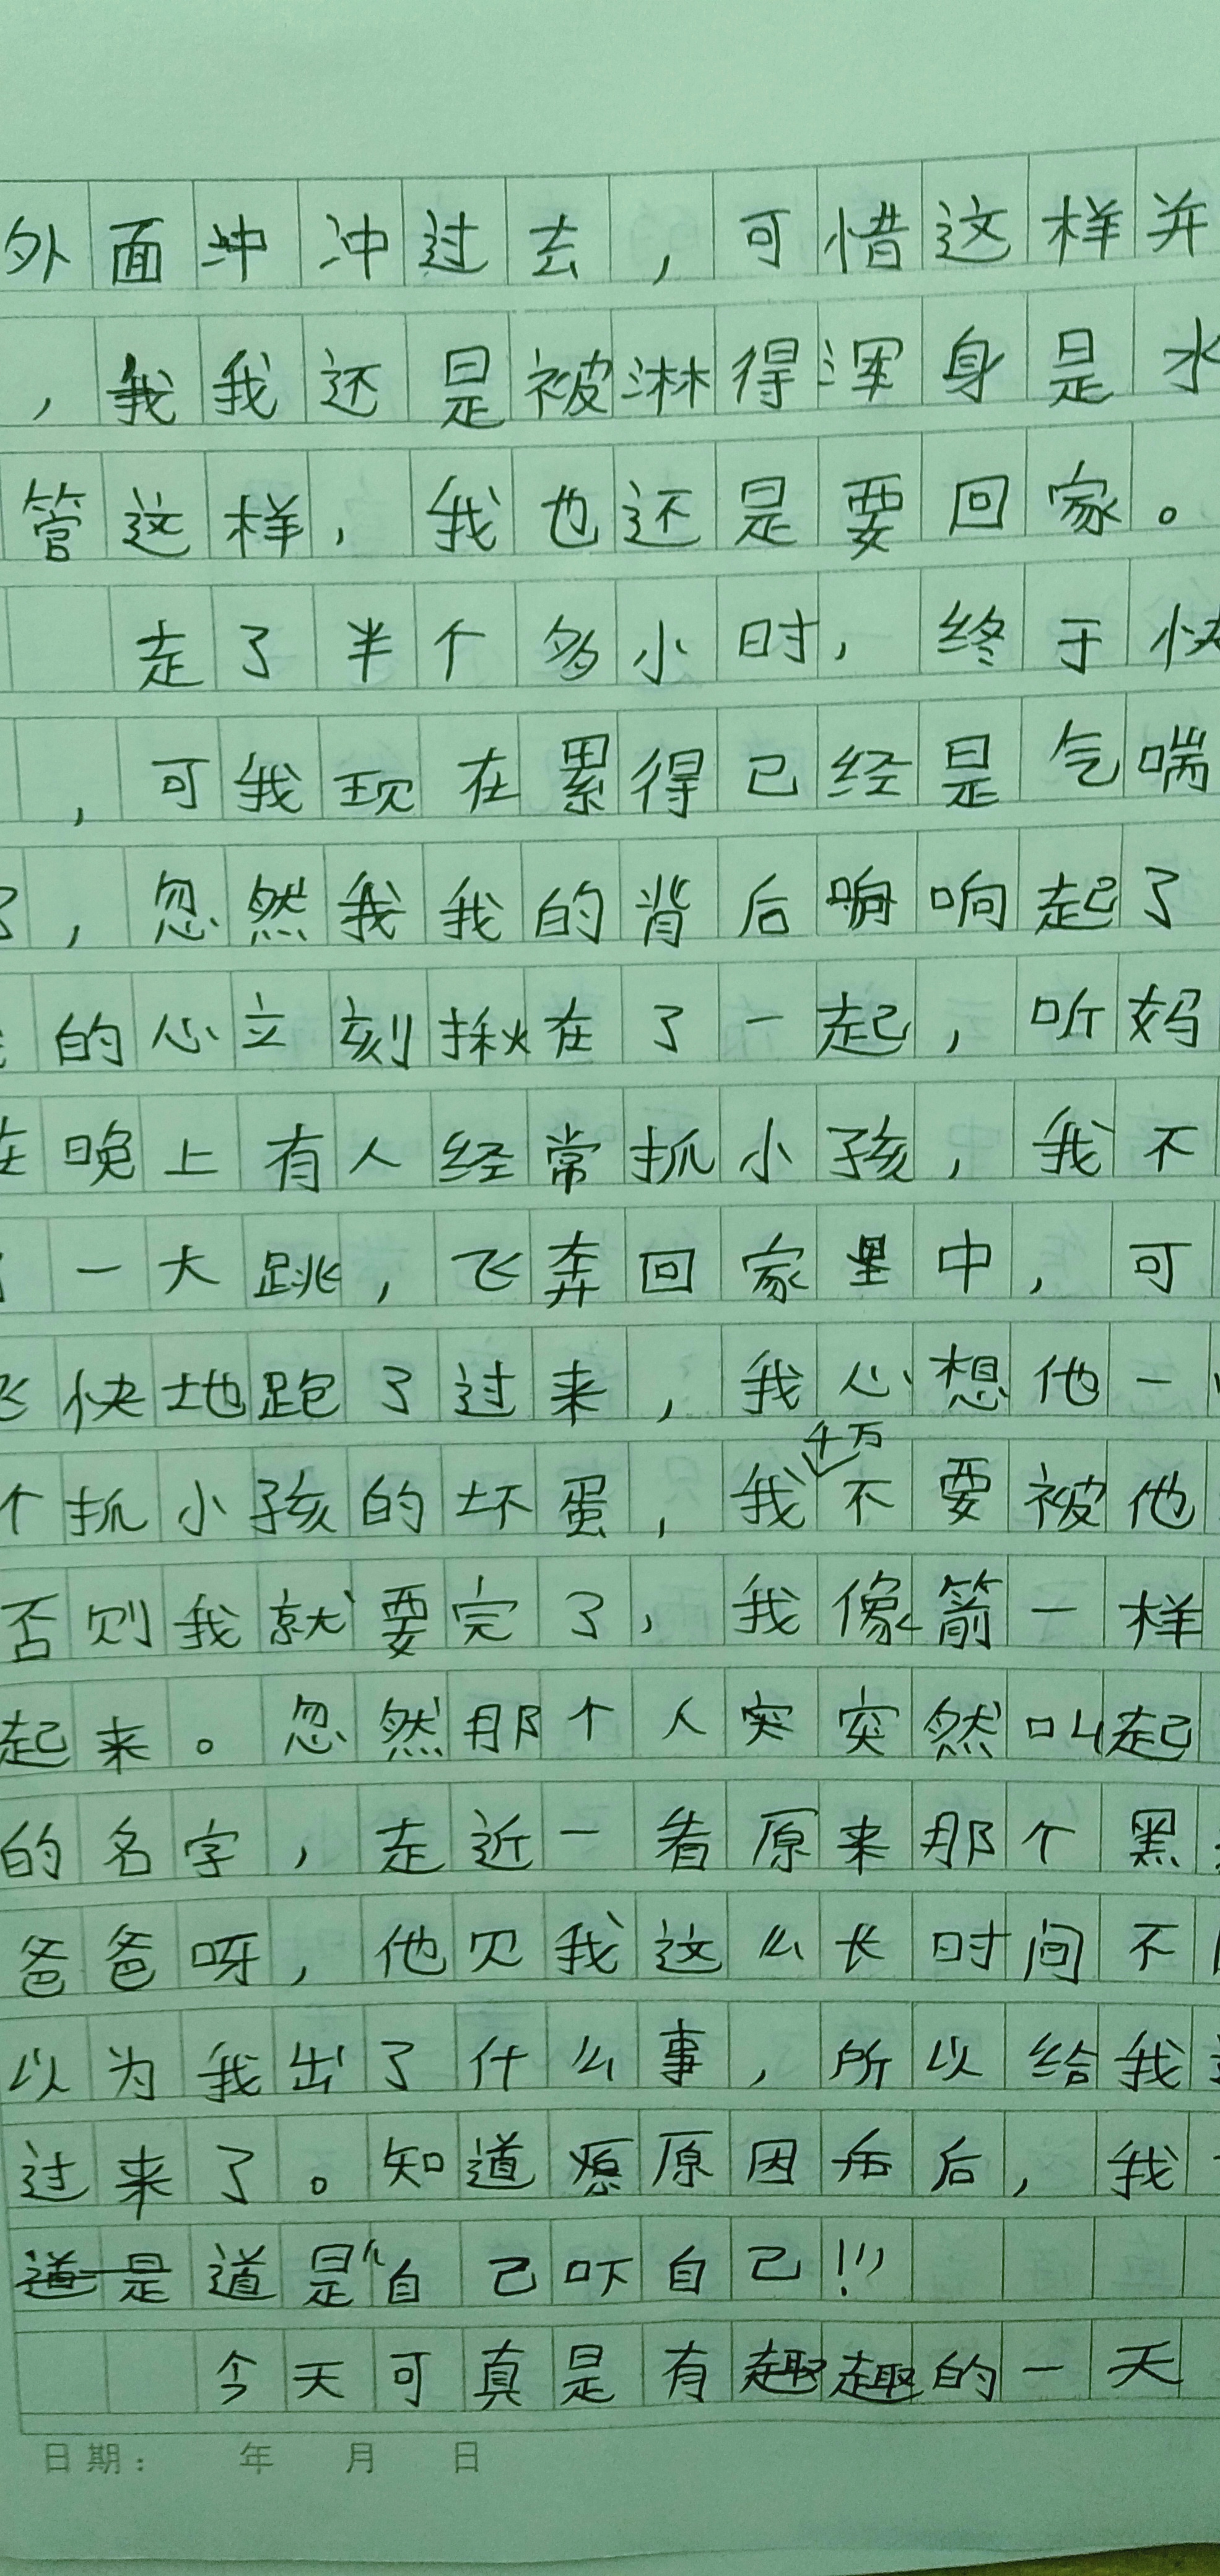 外面冲冲过去，可惜这样并
，我我还是被淋得浑身是水
管这样，我也还是要回家。
走了半个多小时，终于快
，可我现在累得已经是气喘
了，忽然我我的背后响响起了
的心立刻揪在了一起，听妈
在晚上有人经常抓小孩，我不
一大跳，飞奔回家里中，可
飞快地跑了过来，我心想他一
千万
个抓小孩的坏蛋，我不要被他
否则我就要完了，我像箭一样
起来。忽然那个人突突然叫起
的名字，走近一看原来那个黑
爸爸呀，他见我这么长时间不
以为我出了什么事，所以给我
过来了。知道原原因后后，我
道是道是“自己吓自己!!!
今天可真是有趣趣的一天
日期： 年 月 日